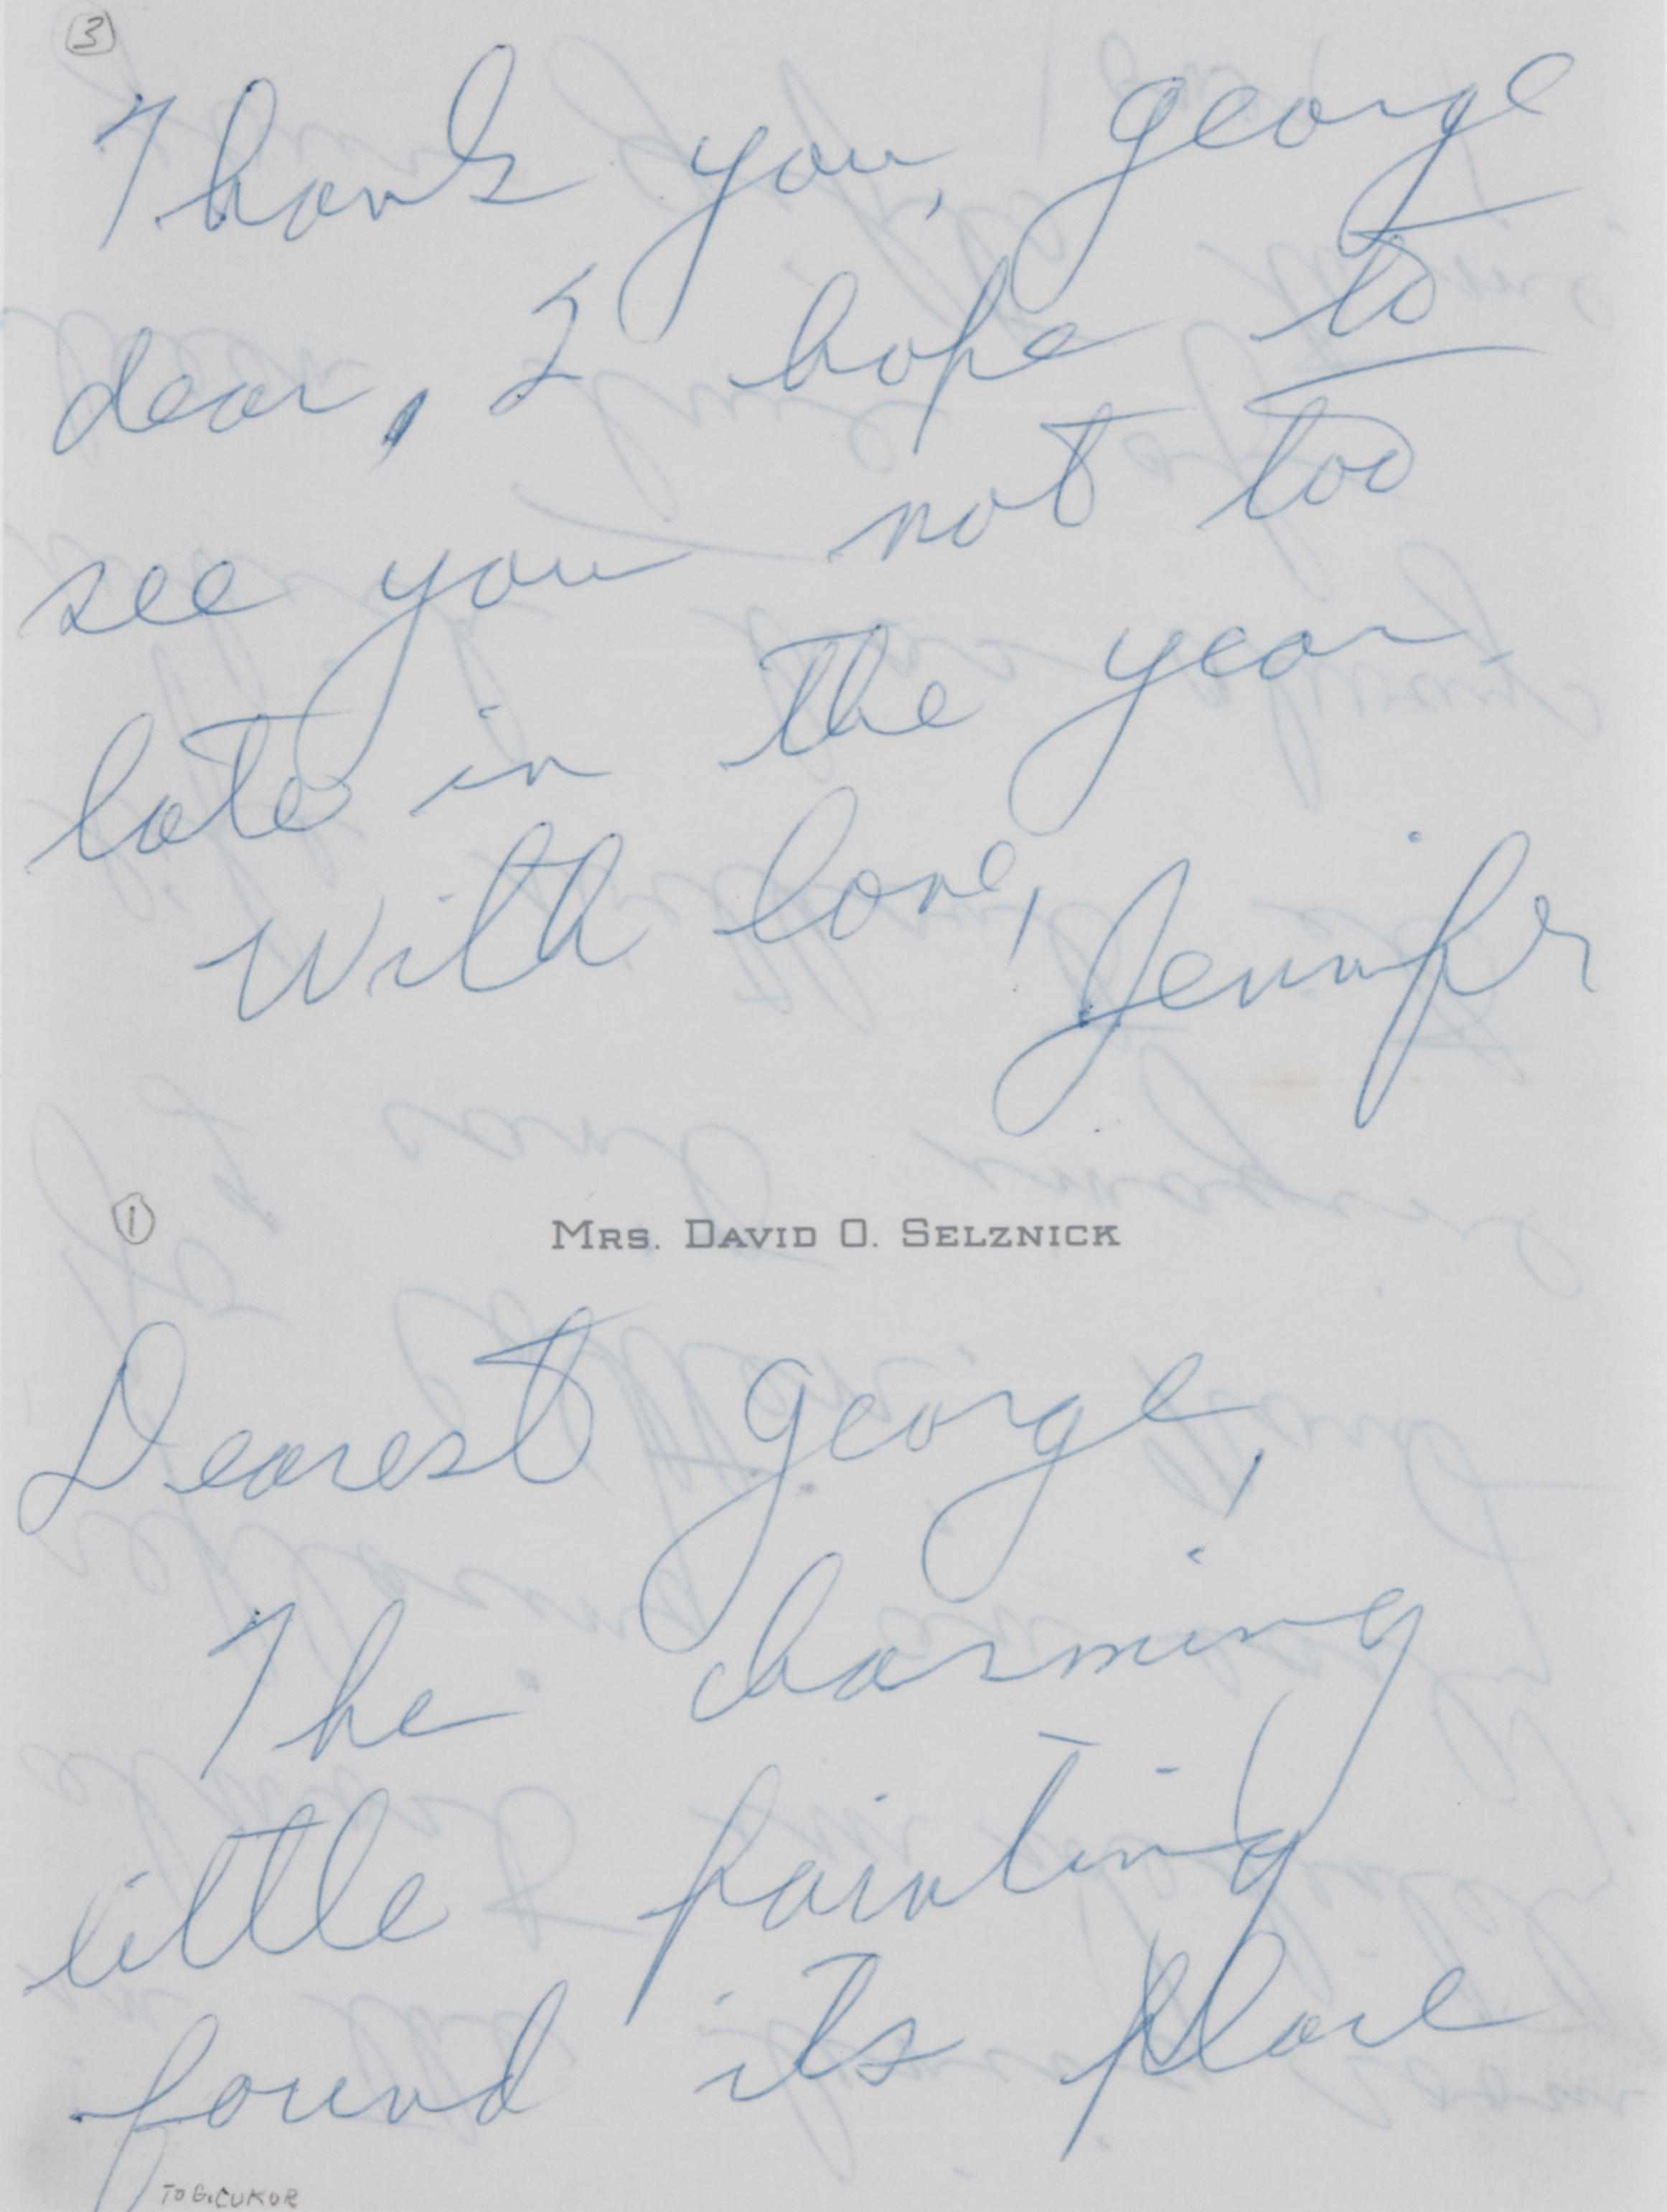 3
Thank you, George
dear, I hope to
see you not too
late in the year
With love,
Jennifer
1
MRS. DAVID O. SELZNICK
Dearest George,
The charming
little painting
found its place
TO G. CUKOR